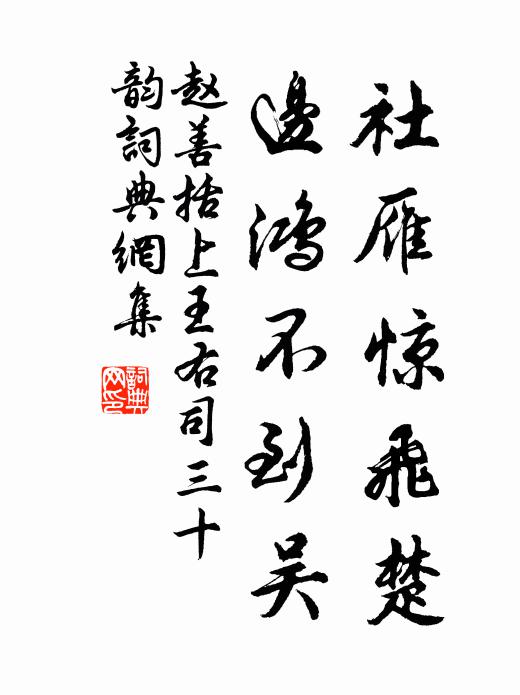 社雁惊飛楚
邊鴻不到吴
赵善括上王右司三十
韵詞典網集
詞典网印